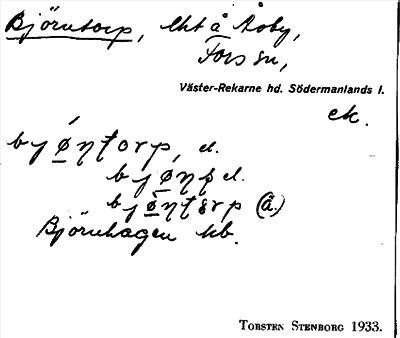 Björntorp, lht å Åby,
Fors sn,
Väster-Rekarne hd. Södermanlands l.
ek.
bjø̱ɳʈorp, d.
bjø̱ɳp d.
bjø̱ɳʈɵrp (ä.)
Björnhagen kb.
TORSTEN STENBORG 1933.